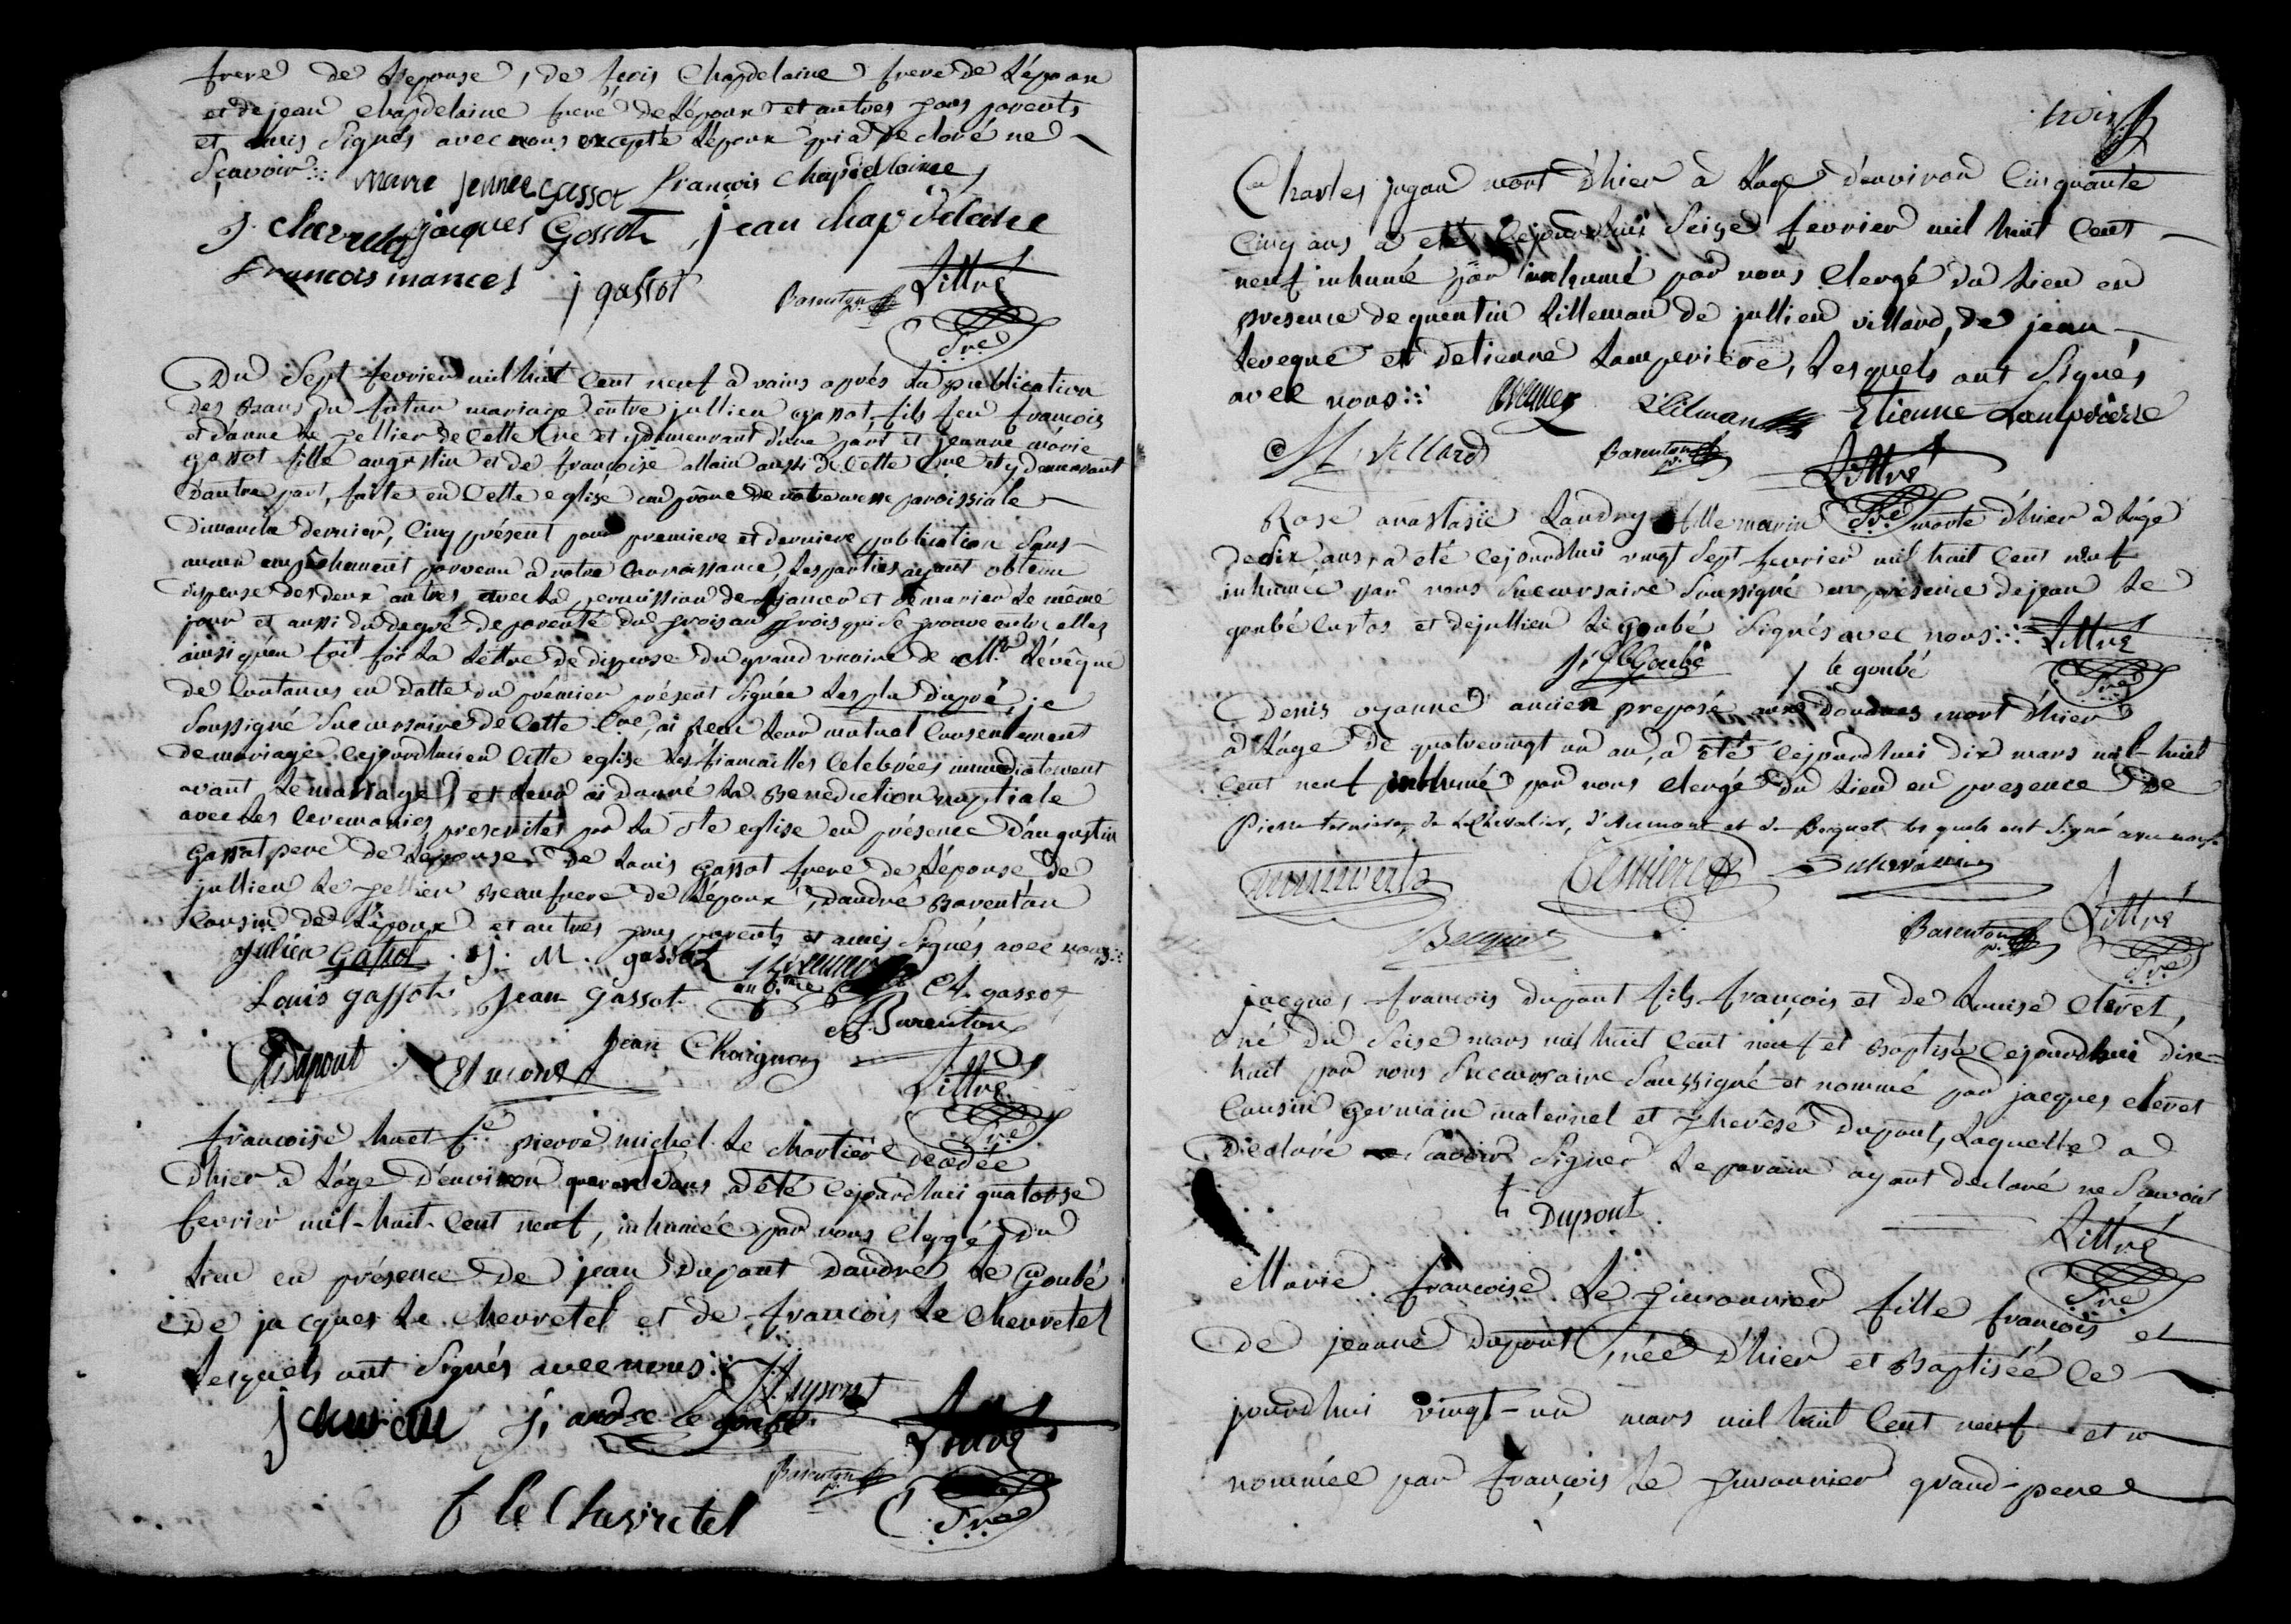 frere de L'epouse, de fçois Chapdelaine frere de L'époux
et de jean chapdelaine frere de L'époux et autres parents
et amis Signés avec nous excepté L'époux qui a declaré ne
Scavoir
marie jenne gassot françois chapdelaine
jacques Gossot jean chapdelaine
francois mancel j gassot Barenton Littré
Sre
Du Sept fevrier mil huit Cent neuf après la publication
Des Bans du futur mariage entre jullien gassot fils feu francois
et d'anne Le pellier de Cette Cne et y demeurant d'une part et jeanne marie
gassot fille augustin et de francoise allain aussi de Cette Cne et y demeurant
d'autre part, faite en Cette eglise au prône de notre messe paroissiale
Dimanche dernier, Cinq présent pour premiere et derniere publication Sans
aucun empêchement parvenu à notre Connoissance, Les parties ayant obtenu
dispense des deux autres avec La permission de fiancer et de marier Le même
jour et aussi du degré de parenté du trois au trois qui Se trouve entre elles
ainsi qu'en fait foi La Lettre de dispense du grand vicaire de Mgr L'évêque
de Coutances en datte du premier présent Signée dupré, je
Soussigné Succursaire de Cette Cne, ai pour Leur mutuel Consentement
de mariage Cejourdhui en Cette eglise Les fiancailles Celebrées immediatement
avant Le mariage et Leur ai donné La Benediction nuptiale
avec Les Ceremonies prescrites par La Ste eglise en présence d'augustin
Gassot pere de L'épouse, de Louis Gassot frere de L'épouse de
jullien Le pellier Beaufrere de L'époux, d'andré Barenton
Cousin de L'époux et autres parents et amis Signés avec nous
julien Gassot J. M. gassot
Louis gassot Jean Gassot A. gassot
Barenton
Dupont Jean Chaignon
Littré
Sre
francoise huet fe pierre michel Le Chartier decedée
d'hier à L'âge d'environ quarante ans a été Cejourdhui quatorse
fevrier mil-huit-Cent neuf, inhumée par nous Clergé du
Lieu en présence de jean Dupont d'andré Le Goubé
De jacques Le Chevretel et de francois Le Chevretel
Lesquels ont Signés avec nous
Dupont
andre le goube Littré
Barenton
f le Chevretel Sre
trois
Charles jugan mort d'hier à L'age d'environ Cinquante
Cinq ans a été Cejourdhui Seize fevrier mil huit Cent
neuf inhumé par inhumé par nous Clergé du Lieu en
presence de quentin Lilleman de jullien villard, de jean
Leveque et detienne Lamperiere, Lesquels ont Signés
avec nous
Etienne Lamperiere
Villard Barenton Littré
Sre
Rose anastasie Landry fille marin morte d'hier a L'âge
de Six ans, a été Cejourdhui vingt Sept fevrier mil huit Cent neuf
inhumée par nous Succursaire Soussigné en présence de jean Le
goubé Custos et de jullien Le goubé Signés avec nous Littré
le Goubé j le goubé Sre
Denis oyanne ancien preposé aux douanes mort d'hier
à L'âge de quatrevingt un an, a été Cejourdhui dix mars mil-huit
Cent neuf inhumé par nous Clergé du Lieu en presence de
Pierre ternisien, de LeChevalier, d'Aumont et de Becquet les quels ont Signé avec nous
Becquet Barenton Littré
Sre
jacques, francois dupont fils françois et de Louise Clevet,
né du Seise mars mil huit Cent neuf et Baptisé Cejourdhui dix-
huit par nous Succursaire Soussigné et nommé par jacques clevet
Cousin Germain maternel et Therèse Dupont, Laquelle a
Declaré savoir Signer Le parain ayant declaré ne Savoir
t Dupont
Littré
Sre
Marie francoise Le fille francois et
de jeanne dupont née d'hier et Baptisée Ce
jourdhui vingt-un mars mil huit Cent neuf et
nommée par françois Le grand-pere